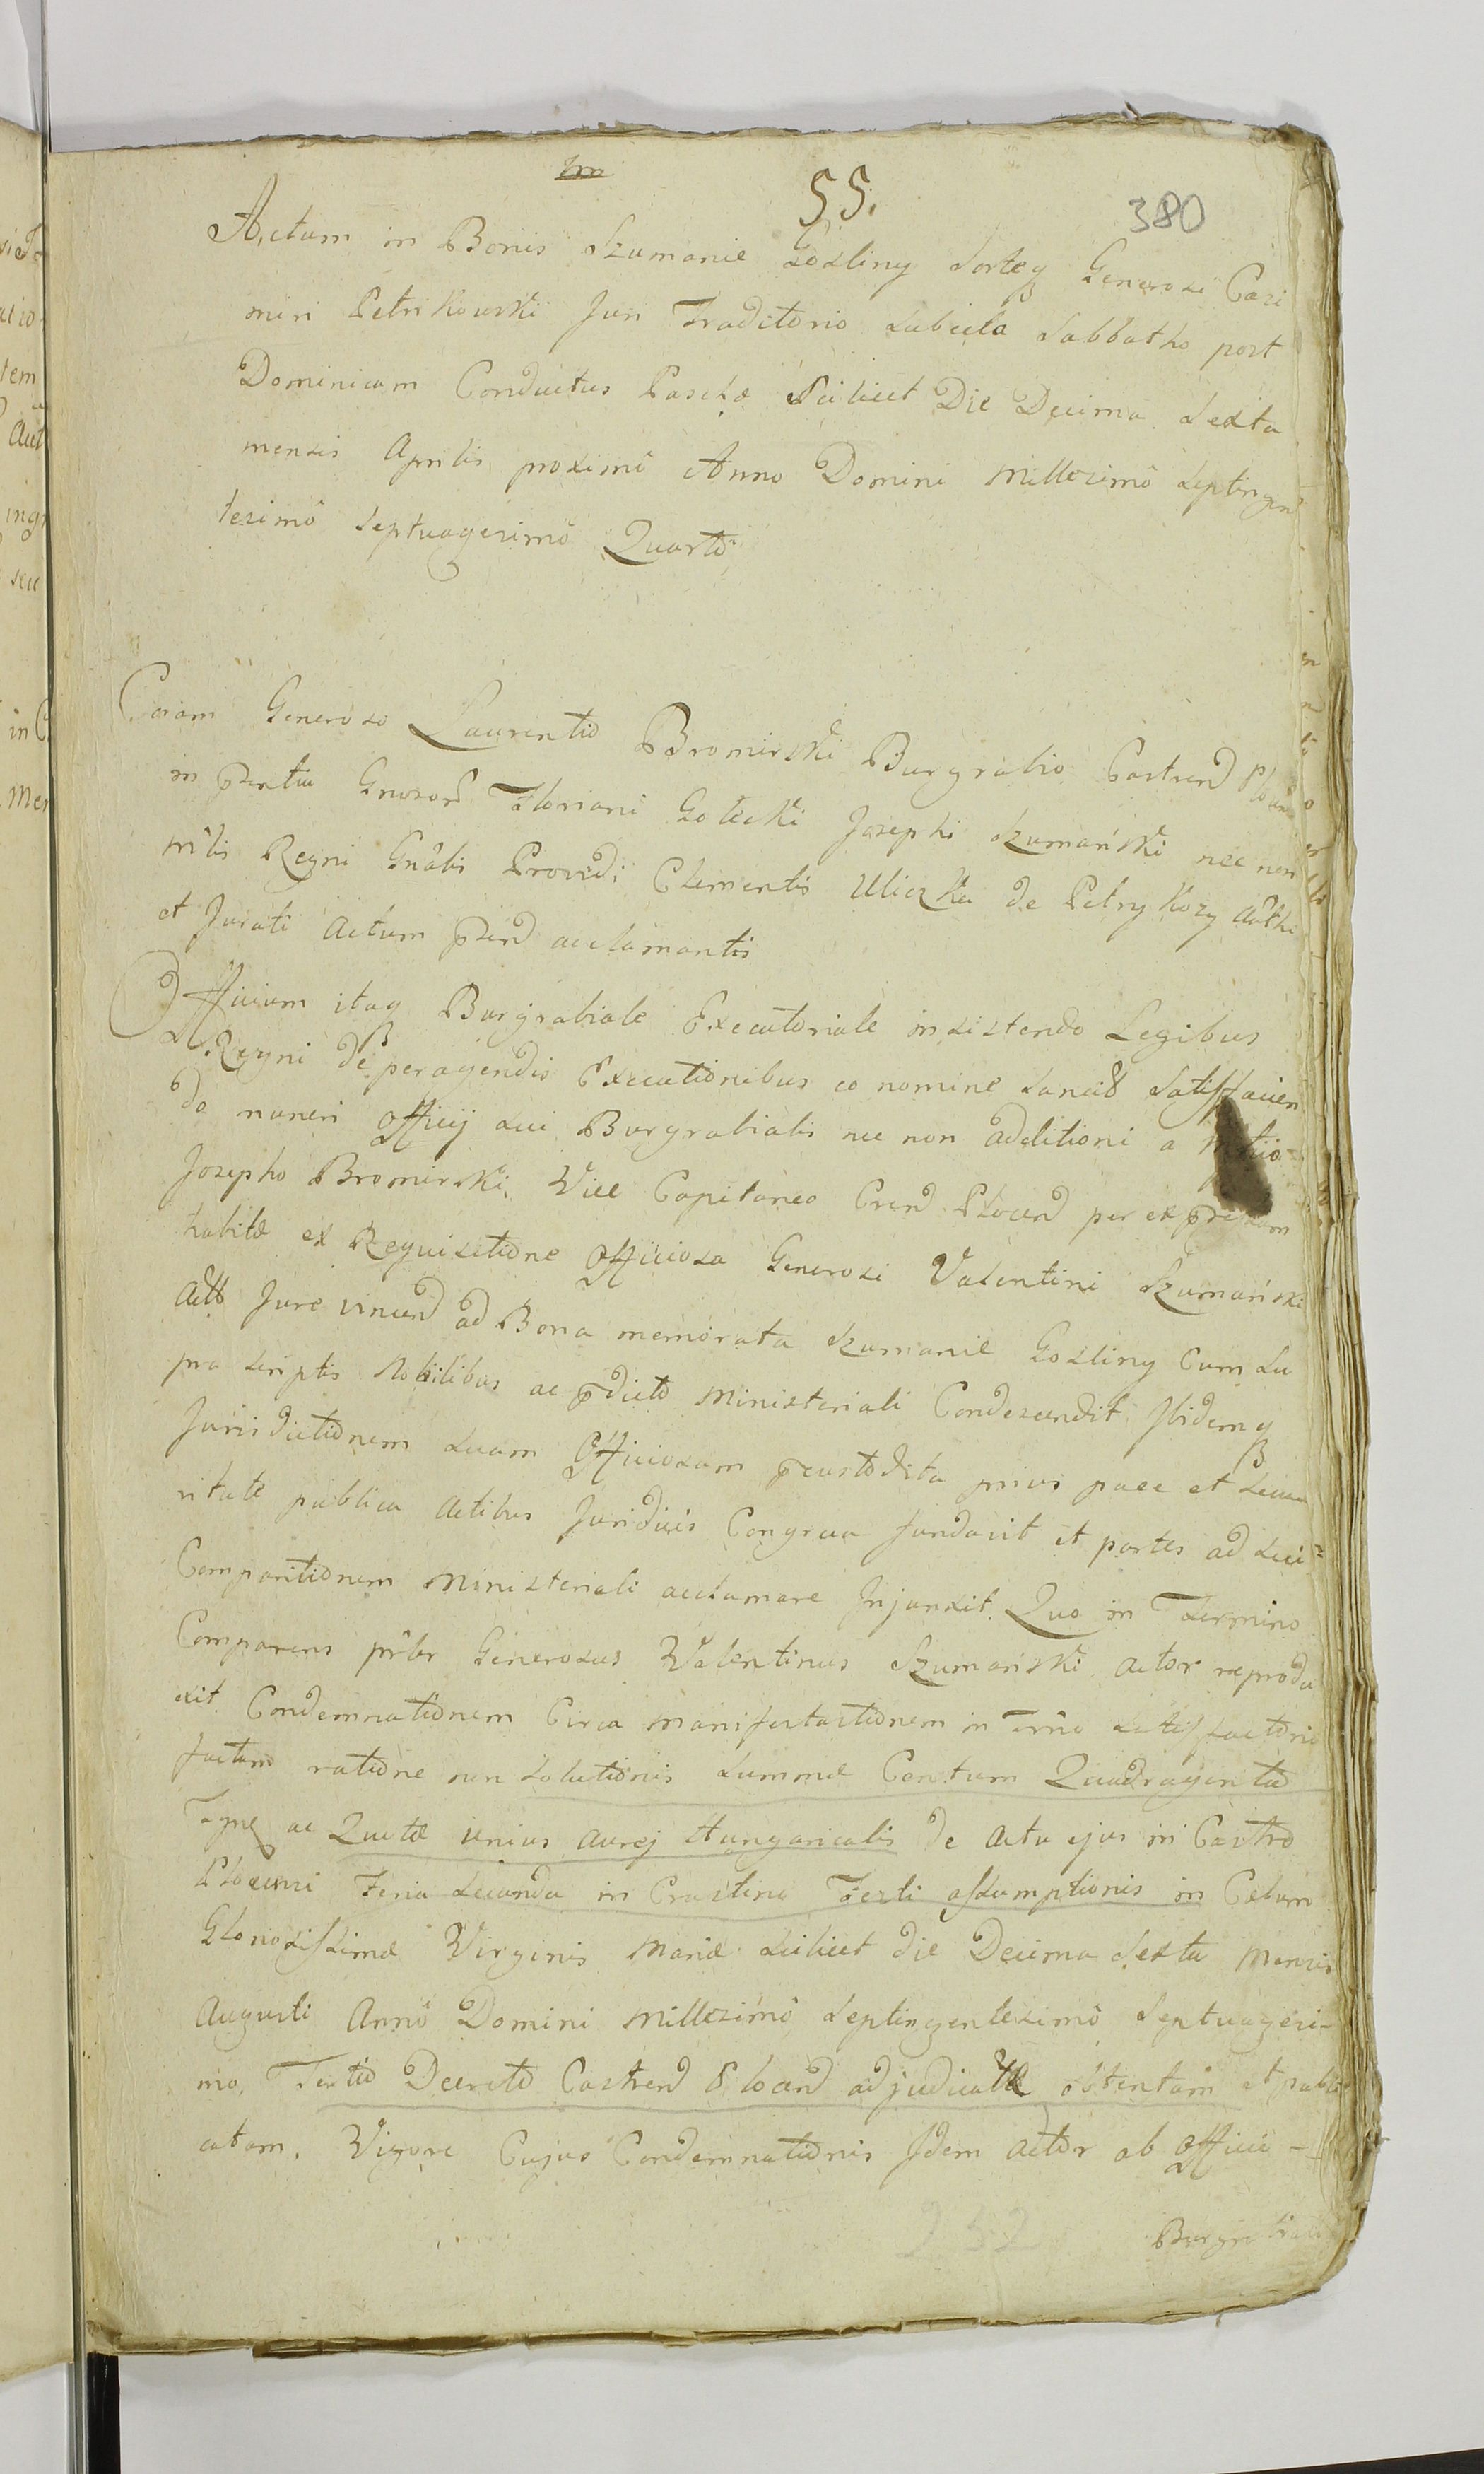 55.
380
Actum in Bonis Szumanie Gozliny Sorteq Generosi Casi
miri Petrikowski Juri Traditorio Subiecta Sabbatho post
Dominicam Conductus Paschæ Scilicet Die Decima Sexta
mensis Aprilis proximè Anno Domini Millesimô Septingen
tesimô Septuagesimô Quartô
Coram Generoso Laurentio Bromirski Burgrabio Castrend Plocen
in pzentia Gnosord Floriani Golecki Josephi Szumański nec non
mlis Regni Gnâlis Providi Clementis Uliczka de Petrykozy aûthe
et Jurati actum pzend acclamantis
Officium itaq Burgrabiale Executoriale insistendo Legibus
Regni de peragendis Executionibus eo nomine Sancitis Satisfacien
do muneri officij sui Burgrabialis nec non additioni a
Josepho Bromirski Vice Capitaneo Crend Plocend per expressum
habitæ ex Requisitione Officiosa Generosi Valentini Szumański
Jure vincend ad Bona memorata Szumanie Gozliny cum su
pra scriptis Nobilibus ac pdicto Ministeriali Condescendit Ibidemq
Jurisdictionem suam Officiosam pcustodita prius pace et secu
ritate publica actibus Juridicis Congrua fundavit et partes ad sui
Comparitionem Ministeriali acclamare Injunxit. Quo in Termino
Comparens prlter Generosus Valentinus Szumański actor reprodu
xit Condemnationem Circa manifestationem in Trnô Satisfactorio
factam ratione non Solutionis Summæ Centum Quadraginta
ac Quotæ unius aurej Hungaricalis de actu ejus in Castro
Plocensi Feria Secunda in Crastino Festi assumptionis in Cœlum
Gloriosissimæ Virginis Mariæ Scilicet die Decima Sexta Mensis
Augusti Annô Domini Millesimô Septingentesimô Septuagesi-
mo Tertio Decreto Castrend Plocend adjudicatæ obtentam et publi
catam. Vigore Cujus Condemnationis Idem actor ab Officio -
Burgrabiali
232